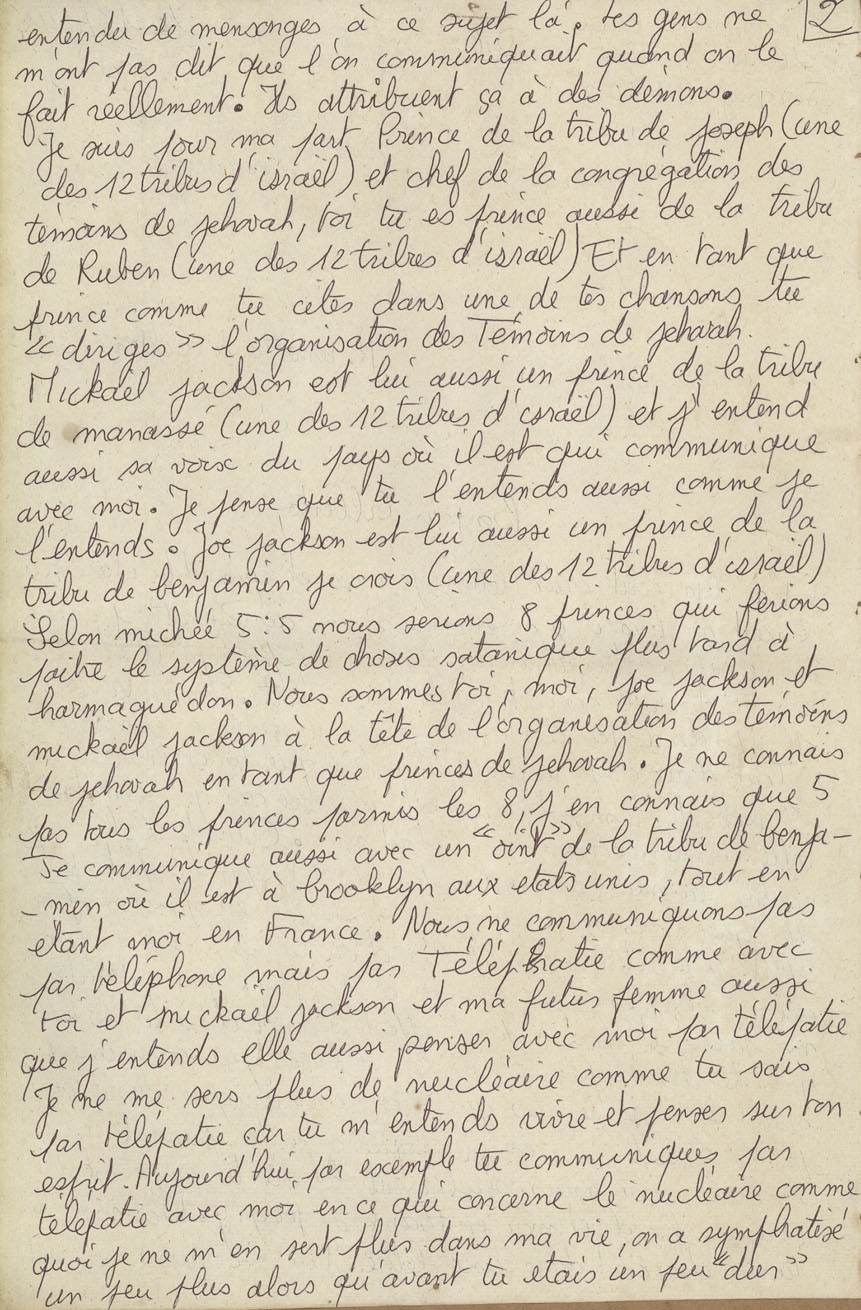 2
entendu de mensonges à ce sujet là. tes gens ne
m'ont pas dit que l'on communiquait quand on le
fait réellement. Ils attribuent ça à des démons.
Je suis pour ma part Prince de la tribu de joseph (une
des 12 tribus d'israël) et chef de la congrégation des
témoins de jehovah, toi tu es prince aussi de la tribu
de Ruben (une des 12 tribus d'israël) Et en tant que
prince comme tu cites dans une de tes chansons tu
« diriges » l'organisation des Témoins de jehovah.
Mickaël jackson est lui aussi un prince de la tribu
de manassé (une des 12 tribus d'israël) et j'entend
aussi sa voix du pays où il est qui communique
avec moi. Je pense que tu l'entends aussi comme je
l'entends. Joe jackson est lui aussi un prince de la
tribu de benjamin je crois (une des 12 tribus d'israël)
Selon michée 5:5 nous serions 8 princes qui ferions
paitre le système de choses satanique plus tard à
harmaguédon. Nous sommes toi, moi, joe jackson et
mickaël jackson à la tête de l'organisation des témoins
de jehovah en tant que princes de jehovah. Je ne connais
pas tous les princes parmis les 8, j'en connais que 5
Je communique aussi avec un « oint » de la tribu de benja-
-min où il est à brooklyn aux etats unis, tout en
etant moi en France. Nous ne communiquons pas
par téléphone mais par Téléphatie comme avec
toi et mickaël jackson et ma futur femme aussi
que j'entends elle aussi penser avec moi par télépatie
Je ne me sers plus de nucléaire comme tu sais
par télépatie car tu m'entends vivre et penser sur ton
esprit. Aujourd'hui par exemple tu communiques par
télépatie avec moi en ce qui concerne le nucléaire comme
quoi je ne m'en sert plus dans ma vie, on a symphatisé
un peu plus alors qu'avant tu etais un peu "dur"